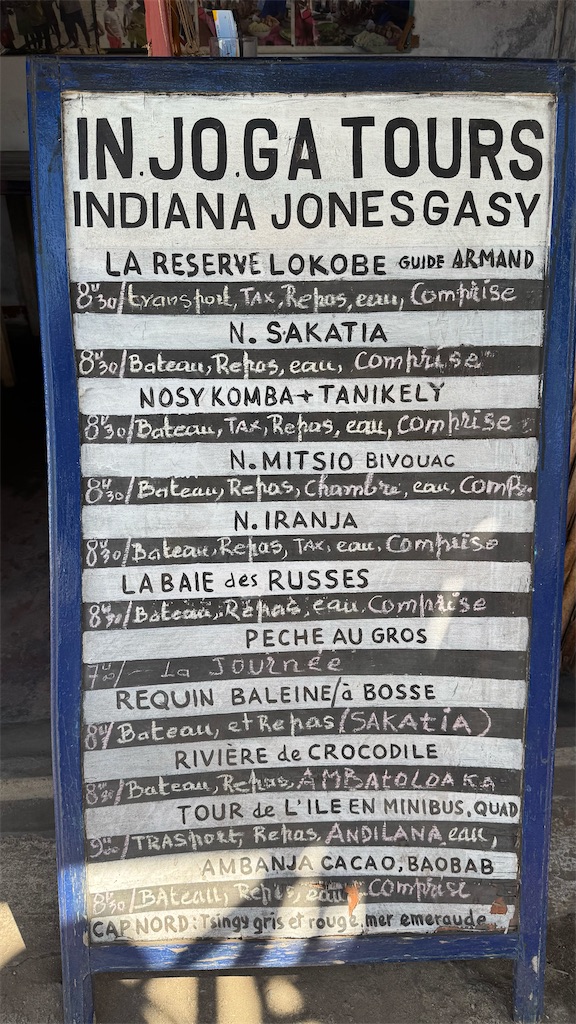 IN.JO.GA TOURS
INDIANA JONESGASY
LA RESERVE LOKOBE GUIDE ARMAND
8H30/transport, TAX, Repas, eau, Comprise
N. SAKATIA
8H30/Bateau, Repas, eau, Comprise
NOSY KOMBA + TANIKELY
8H30/Bateau, TAX, Repas, eau, Comprise
N. MITSIO BIVOUAC
8H30/Bateau, Repas, Chambre, eau, Comp.
N. IRANJA
8H30/Bateau, Repas, TAX, eau, Comprise
LA BAIE des RUSSES
8H30/Bateau, Repas, eau Comprise
PECHE AU GROS
7H00/- La JOURNée
REQUIN BALEINE/à BOSSE
8H/Bateau, et Repas (SAKAtiA)
RIVIÈRE de CROCODILE
8H30/Bateau, Repas, AMBAtoLOAKA
TOUR de L'ILE EN MINIBUS, QUAD
9H00/TRASport, Repas, ANDILANA eau,
AMBANJA CACAO, BAOBAB
8H30/BAteau, Repas, eau comprise
CAP NORD: Tsingy gris et rouge, mer emeraude